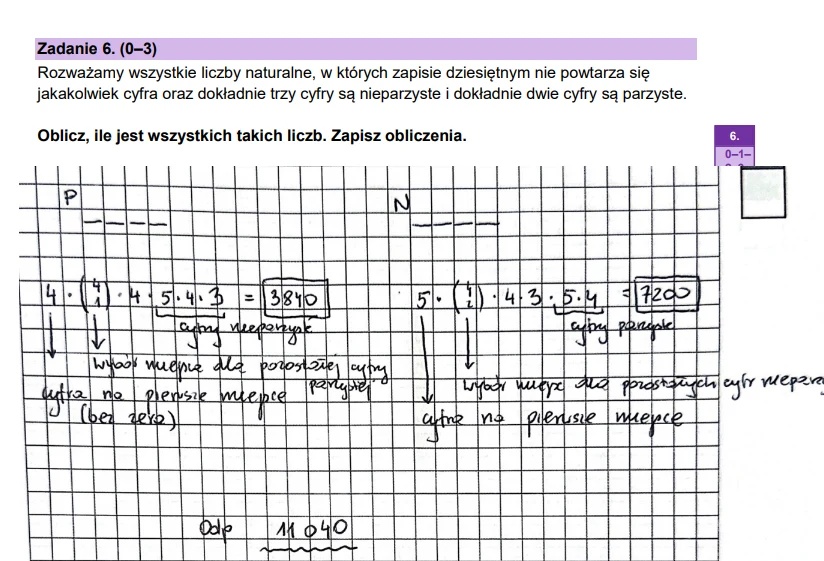 Zadanie 6. (0–3)
Rozważamy wszystkie liczby naturalne, w których zapisie dziesiętnym nie powtarza się
jakakolwiek cyfra oraz dokładnie trzy cyfry są nieparzyste i dokładnie dwie cyfry są parzyste.
Oblicz, ile jest wszystkich takich liczb. Zapisz obliczenia.
6.
0–1–
P
N
4 · (4 1) · 4 · 5 · 4 · 3 = 3840
cyfry nieparzyste
wybór miejsca dla pozostałej cyfry
parzystej
cyfra na pierwsze miejsce
(bez zera)
5 · (4 2) · 4 · 3 · 5 · 4 = 7200
cyfry parzyste
wybór miejsc dla pozostałych cyfr
cyfra na pierwsze miejsce
Odp 11 040